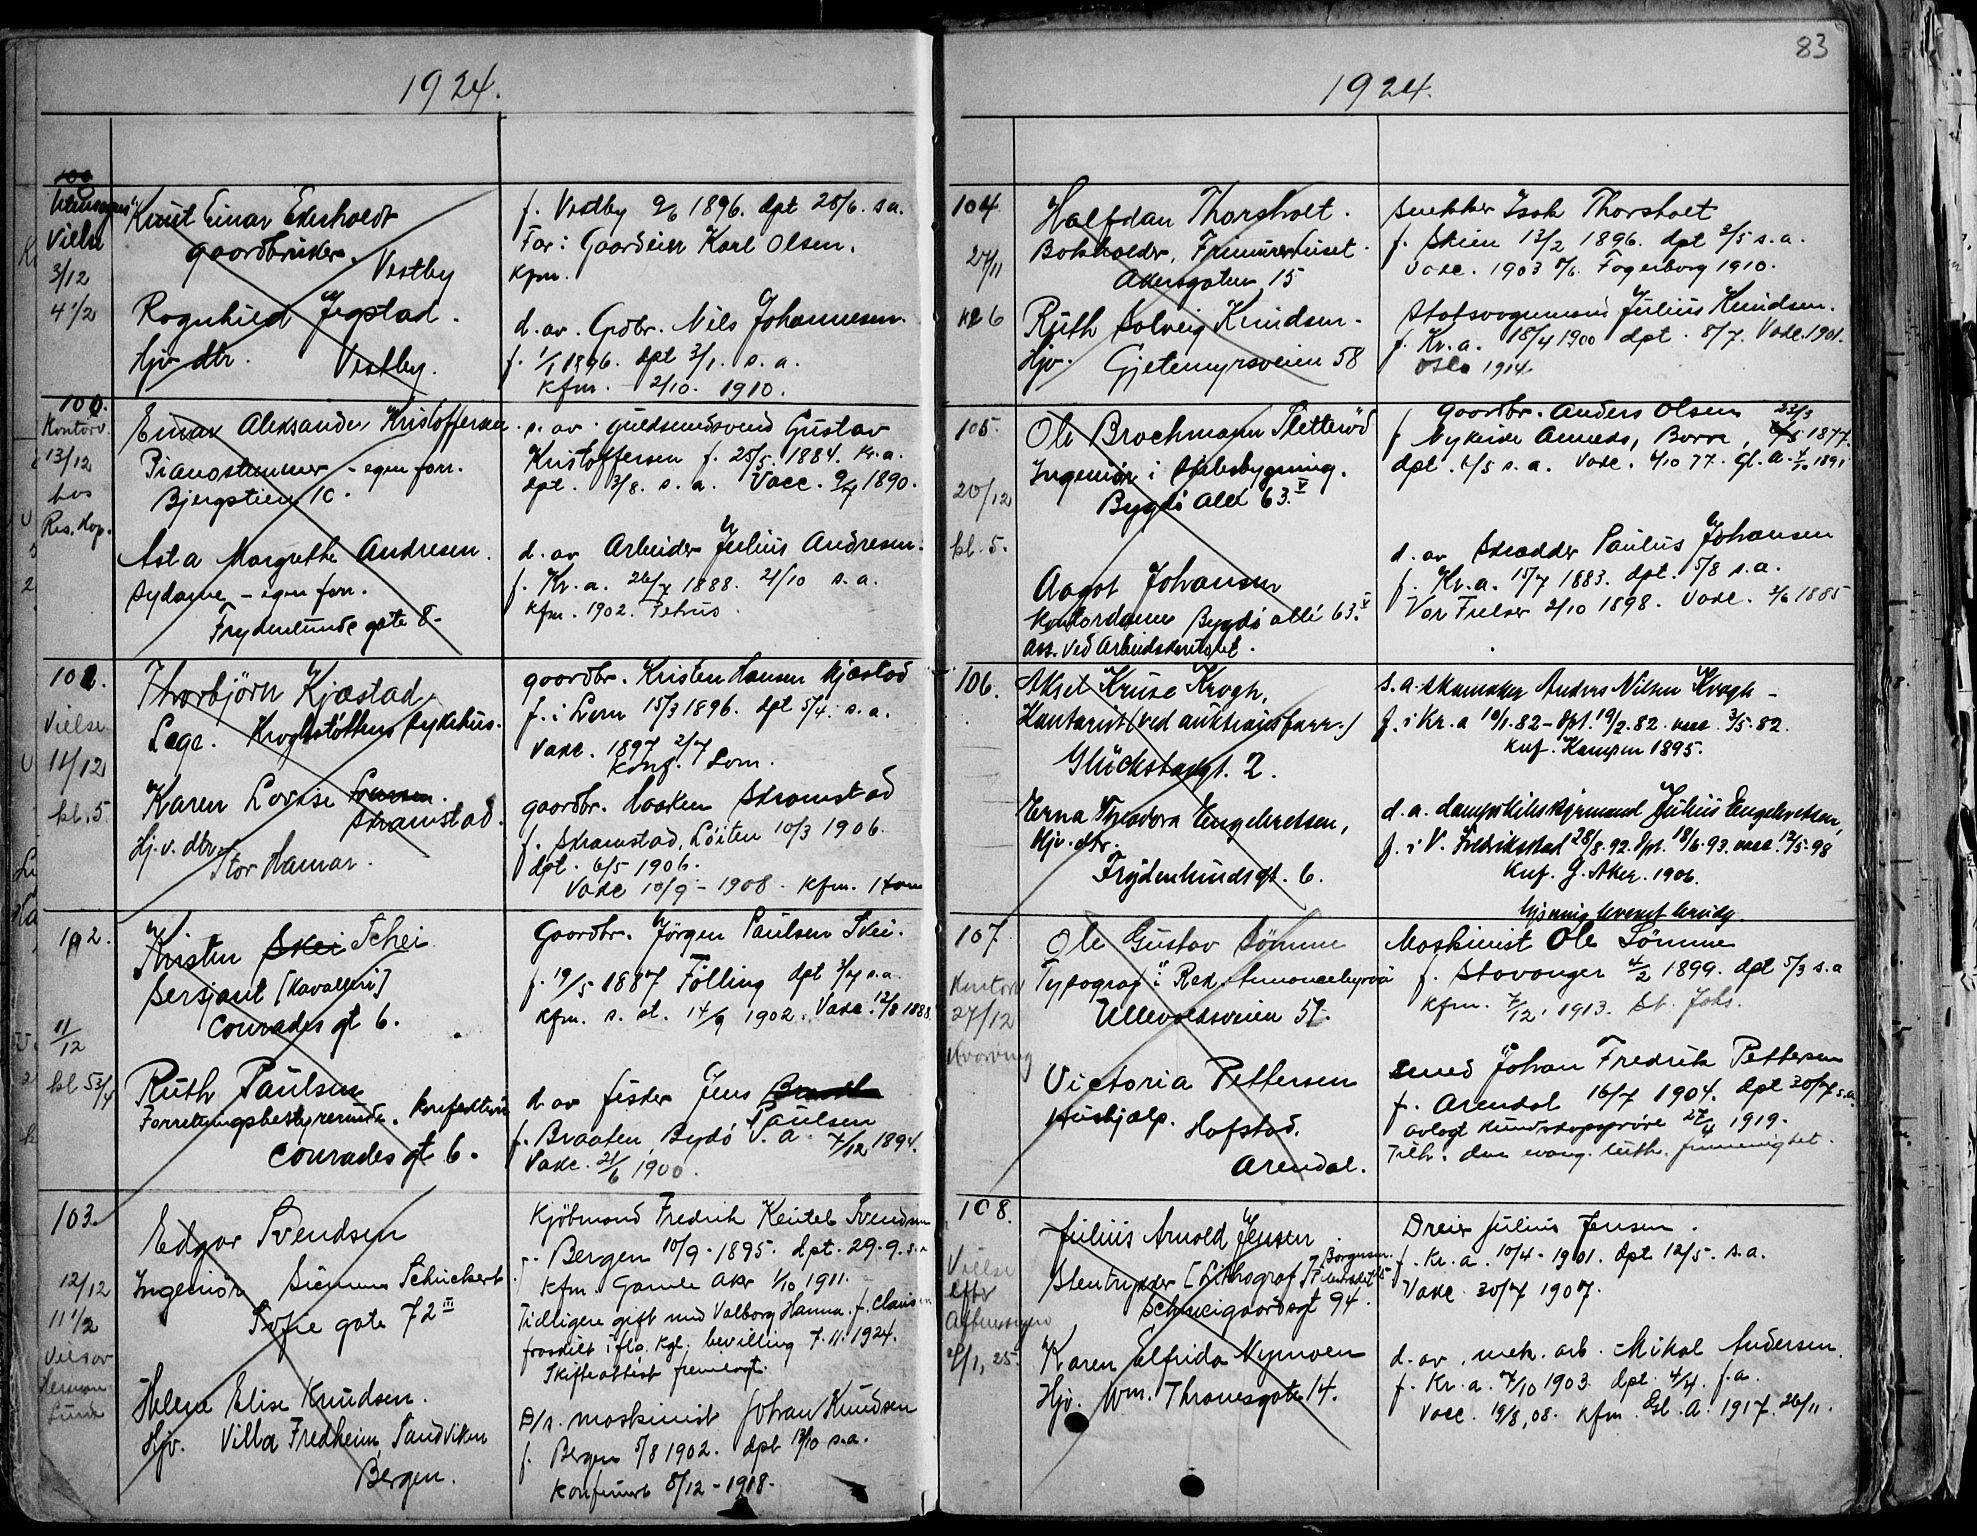 1924.
Knut Einar Ekerholdt
gaardbruker.
Vestby
f. Vestby 9/6 1896. dpt 28/6. s.a.
Far: Gaardeier Karl Olsen.
Kfm.
3/12
4 1/2
Ragnhild Jegstad.
Hjv. dtr. Vestby.
d. av. Grdbr. Nils Johannesen.
f. 1/1 1896. dpt 3/1. s.a.
Kfm. 2/10. 1910.
100.
Kontorv.
13/12
hos
Res. Kap.
Einar Aleksander Kristoffersen
Pianostemmer - egen forr.
Bjergstien 1c.
s. av. guldsmedsvend Gustav
Kristoffersen f. 25/5. 1884. Kr.a.
dpt. 3/8. s.a. Vacc. 1890.
Asta Margrethe Andresen.
Sydame - egen forr.
Frydenlunds gate 8.
d. av Arbeider Julius Andresen.
f. Kr.a. 26/7 1888. 21/10 s.a.
Kfm. 1902. Petrus
101.
Vielse
11/12
kl. 5
Thorbjörn Kjæstad
Lege. Krogstöttens sykehus.
gaardbr. Kristen Hansen Kjæstad
f. i Lom 15/3 1896. dpt 5/4. s.a.
Vaxc. 1897 2/7
Konf. Lom.
Karen Lovise
Skramstad.
Hj. v. dtr.
Stor Hamar.
gaardbr. Haaken Skramstad
f. Skramstad, Löiten 10/3 1906.
dpt. 6/5 1906.
Vaxc 10/9 - 1908. Kfm. Ham
102.
11/12
kl 5 3/4
Kristen Skei Schei
Sersjant [Kavalleri]
Conradis gt 6.
Gaardbr. Jörgen Paulsen Skei.
f. 19/5 1887 Fölling dpt 3/7 s.a.
Kfm. s. st. 14/9 1902. Vaxc. 12/8 1888.
Ruth Paulsen
Forretningsbestyrerinde. Konfektion
Conradis gt 6.
d. av fisker Jens
Paulsen
f. Braaten, Bygdö V.A. 7/12 1894.
Vaxc. 21/6 1900.
103.
12/12
11 1/2
Edgar Svendsen
Ingeniör Siemens Schuckert
Sofie gate 72 III
Kjöbmand Fredrik Keutel Svendsen
f. Bergen 10/9 - 1895. dpt. 29.9. s.a
Kfm Gamle Aker 1/10 1911.
Tidligere gift med Valborg Hanna f. Clausen
fraskilt iflg. kgl. bevilling 7.11.1924.
Skifteattest fremlagt.
Helene Elise Knudsen.
Hjv. Villa Fredheim Sandviken
Bergen.
D/s. maskinist Johan Knudsen
f. Bergen 5/8 1902. dpt 13/10 s.a.
Konfirmert 8/12 - 1918.
83
1924.
104
27/11
kl 6
Halfdan Thorsholt.
Bokholder, Frimurerhuset.
Akersgaten 15
Snekker Isak Thorsholt
f. Skien 13/2 1896. dpt 3/5 s.a.
Vaxc. 1903 Fagerborg 1910.
Ruth Solveig Knudsen.
Hjv. Gjetemyrsveien 58
Statsvognmand Julius Knudsen.
f. Kr.a. 18/4 1900 dpt. 8/7. Vaxc. 1901.
Oslo 1914.
105.
20/12
kl. 5.
Ole Brochmann Sletteröd
Ingeniör i Skibsbygning.
Bygdö allé 63. V
Gaardbr. Anders Olsen 23/3
f. Nykirke Annexs, Borre, 1877.
dpt. 6/5 s.a. Vaxc. 4/10 77. Gl. A. 1891
Aagot Johansen
Kontordame Bygdö allé 63. V
ass. ved Arbeidskontoret.
d. av Skrædder Paulus Johansen
f. Kr.a. 15/7 1883. dpt. 5/8 s.a.
Vor Frelser 2/10 1898. Vaxc. 2/6 1885
106.
Aksel Kruse Krogh,
Kontorist (ved auktionsforr.)
Glückstadgt. 2.
s. a. skomaker Anders Nilsen Krogh -
f. i Kr.a 10/1. 82 - Dpt. 19/2. 82. vacc 3/5. 82.
Knf. Kampen 1895.
Erna Theodora Engebretsen,
Hjv. dtr.
Frydenlundsgt. 6.
d. a. dampskibsstyrmand Julius Engebretsen,
f. i V. Fredrikstad 28/8. 92. Dpt. 18/6. 93. vacc. 12/5. 98
Knf. G. Aker. 1906.
107.
Kontorv
27/12
Ole Gustav Sömme
Typograf i Red. Annoncebyraa
Ullevoldsveien 57.
Maskinist Ole Sömme
f. Stavanger 4/2 1899. dpt 5/3 s.a
Kfm. 7/12. 1913. St. Johs.
Victoria Pettersen
Hushjælp. Hafstad.
Arendal.
Smed Johan Fredrik Pettersen
f. Arendal 16/7 1904. dpt 30/7 s.a.
avlagt kundskapsprøve 27/4 1919.
Tilh. den evang. luth. frimenighet.
108.
Vielse
efter
Julius Arnold Jensen
Stentrykker (Lithograf)
Schweigaardsgt 94.
Dreier Julius Jensen.
f. Kr.a. 10/4 - 1901. dpt 12/5. s.a.
Vaxc. 30/7 1907.
Karen Elfrida Nymoen
Hjv. Wm. Thranesgate 14.
d. av. mek. arb. Mikal Andersen.
f. Kr.a. 7/10 1903. dpt. 4/4. f.a.
Vacc. 19/8, 08. Kfm. Gl. A. 1917. 26/11.